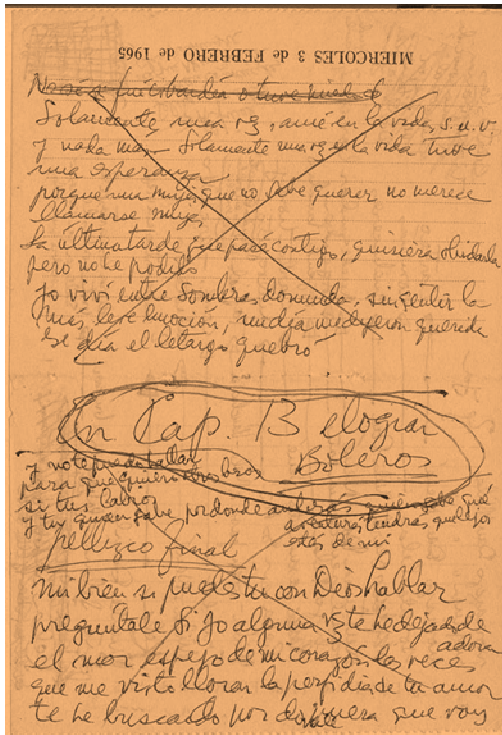 MIERCOLES 3 de FEBRERO de 1965
No sé si fui cobardía o tuve miedo
Solamente una vez, amé en la vida, s. u. v.
y nada más Solamente una vez en la vida tuve
una esperanza
porque una mujer que no sabe querer no merece
llamarse mujer
La última tarde que pasé contigo, quisiera olvidarla
pero no he podido
Yo viví entre sombras dormida, sin sentir la
más leve emoción, un día me dijeron querida
ese día el letargo quebró
En Cap. B elogiar
Boleros
y no te puedo hallar
para qué quiero otros besos
si tus labios
y tu quién sabe por donde andarás quién sabe qué
aventuras tendrás qué lejos
estás de mí
pellizco final
Mi bien si puedes tu con Dios hablar
pregúntale si yo alguna vez te he dejado de
adorar
el mar espejo de mi corazón las veces
que me visto llorar la perfidia de tu amor
te he buscado por doquiera que voy